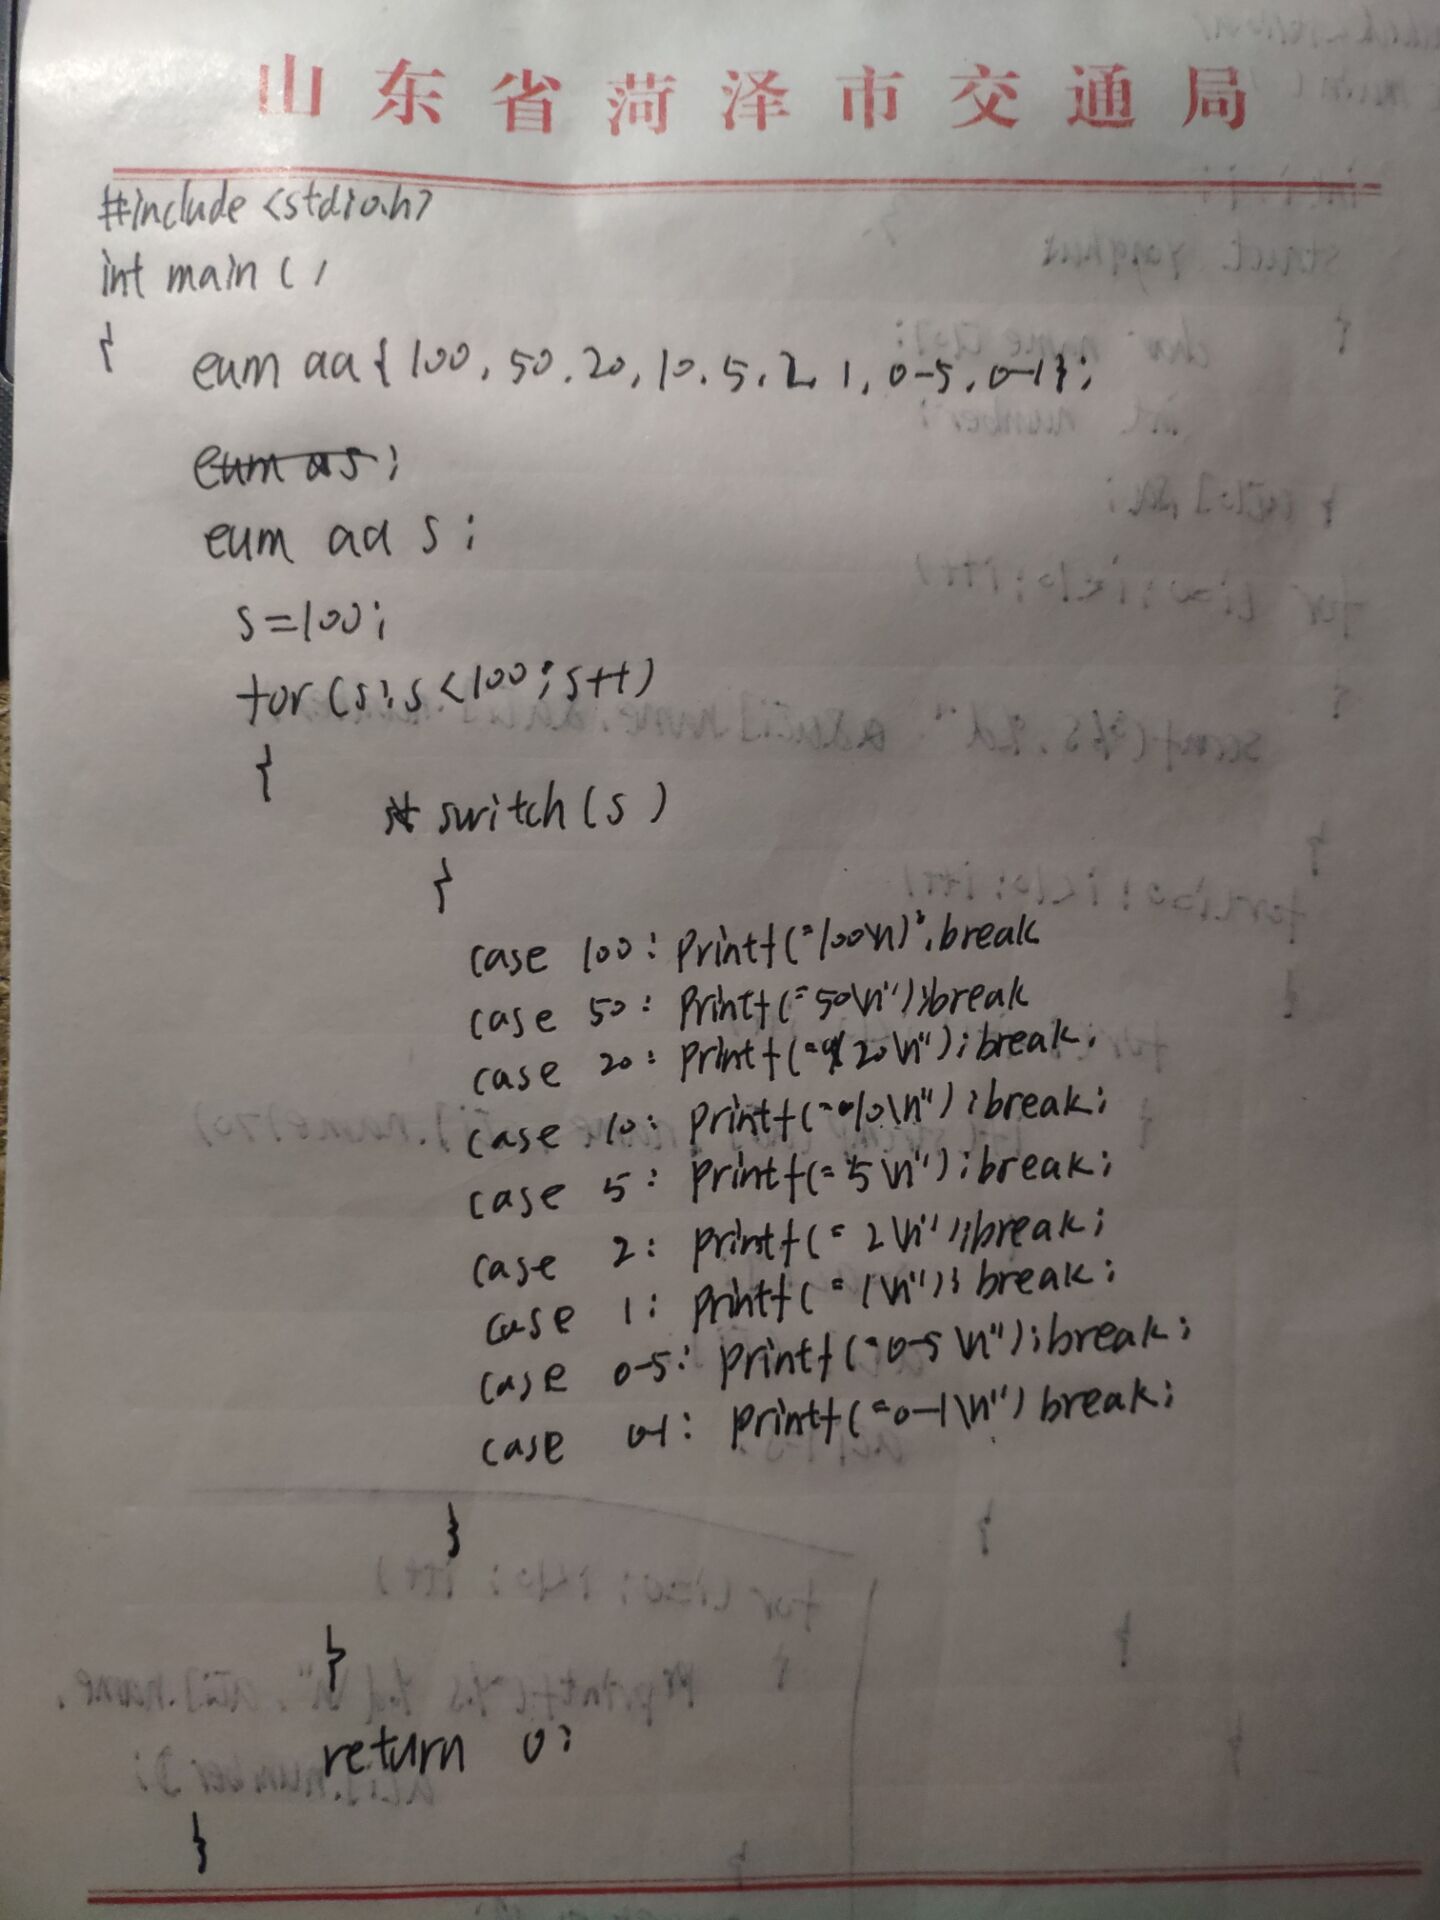 山东省菏泽市交通局
#include <stdio.h>
int main ( )
{
eum aa { 100, 50, 20, 10, 5, 2, 1, 0-5, 0-1};
eum as;
eum aa s;
s=100;
for (s; s<100; s++)
{
switch (s)
{
case 100: printf("100\n);break
case 50: printf("50\n");break
case 20: printf("20\n");break;
case 10: printf("10\n");break;
case 5: printf("5\n");break;
case 2: printf("2\n");break;
case 1: printf("1\n");break;
case 0-5: printf("0-5\n");break;
case 0-1: printf("0-1\n") break;
}
}
return 0;
}